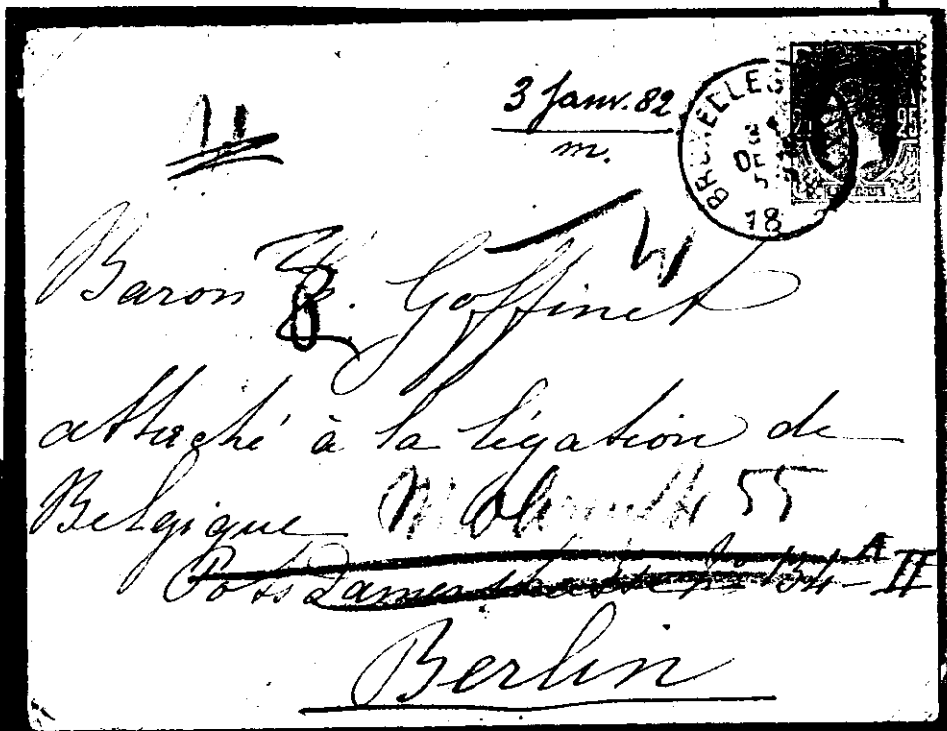 3 Janv. 82
m.
BRUXELLES
3
DEC
18
25
Baron Goffinet
attaché à la légation de
Belgique 55
Potsdamerstrasse No 134 A II
Berlin